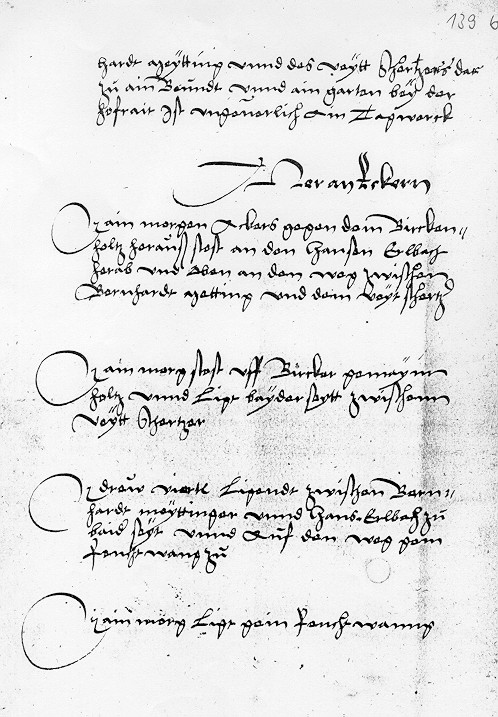 139 6
hardt Meytting vnnd des Veytt Schertzers dar
zu ain Beundt vnnd ain garten bey der
hofrait Ist vngeuerlich Ain Tagwerck
Mer an Eckern
ain morgen Ackers gegen dem Bircken-
holtz herauß stost an den Hansen Erlbach
herab vnd Oben an den weg zwischen
Bernhardt Metting vnd dem Veyt schertz
ain morg stost vff Bircker gemayin
holtz vnnd Ligt bayderseytt zwischenn
Veytt Schertzer
drew viertl Ligendt zwischen Bern-
hardt meyttinger vnnd Hans Erlbach zu
baid seyt vnnd Auf den weg gein
wang zu
ain morg Ligt gein